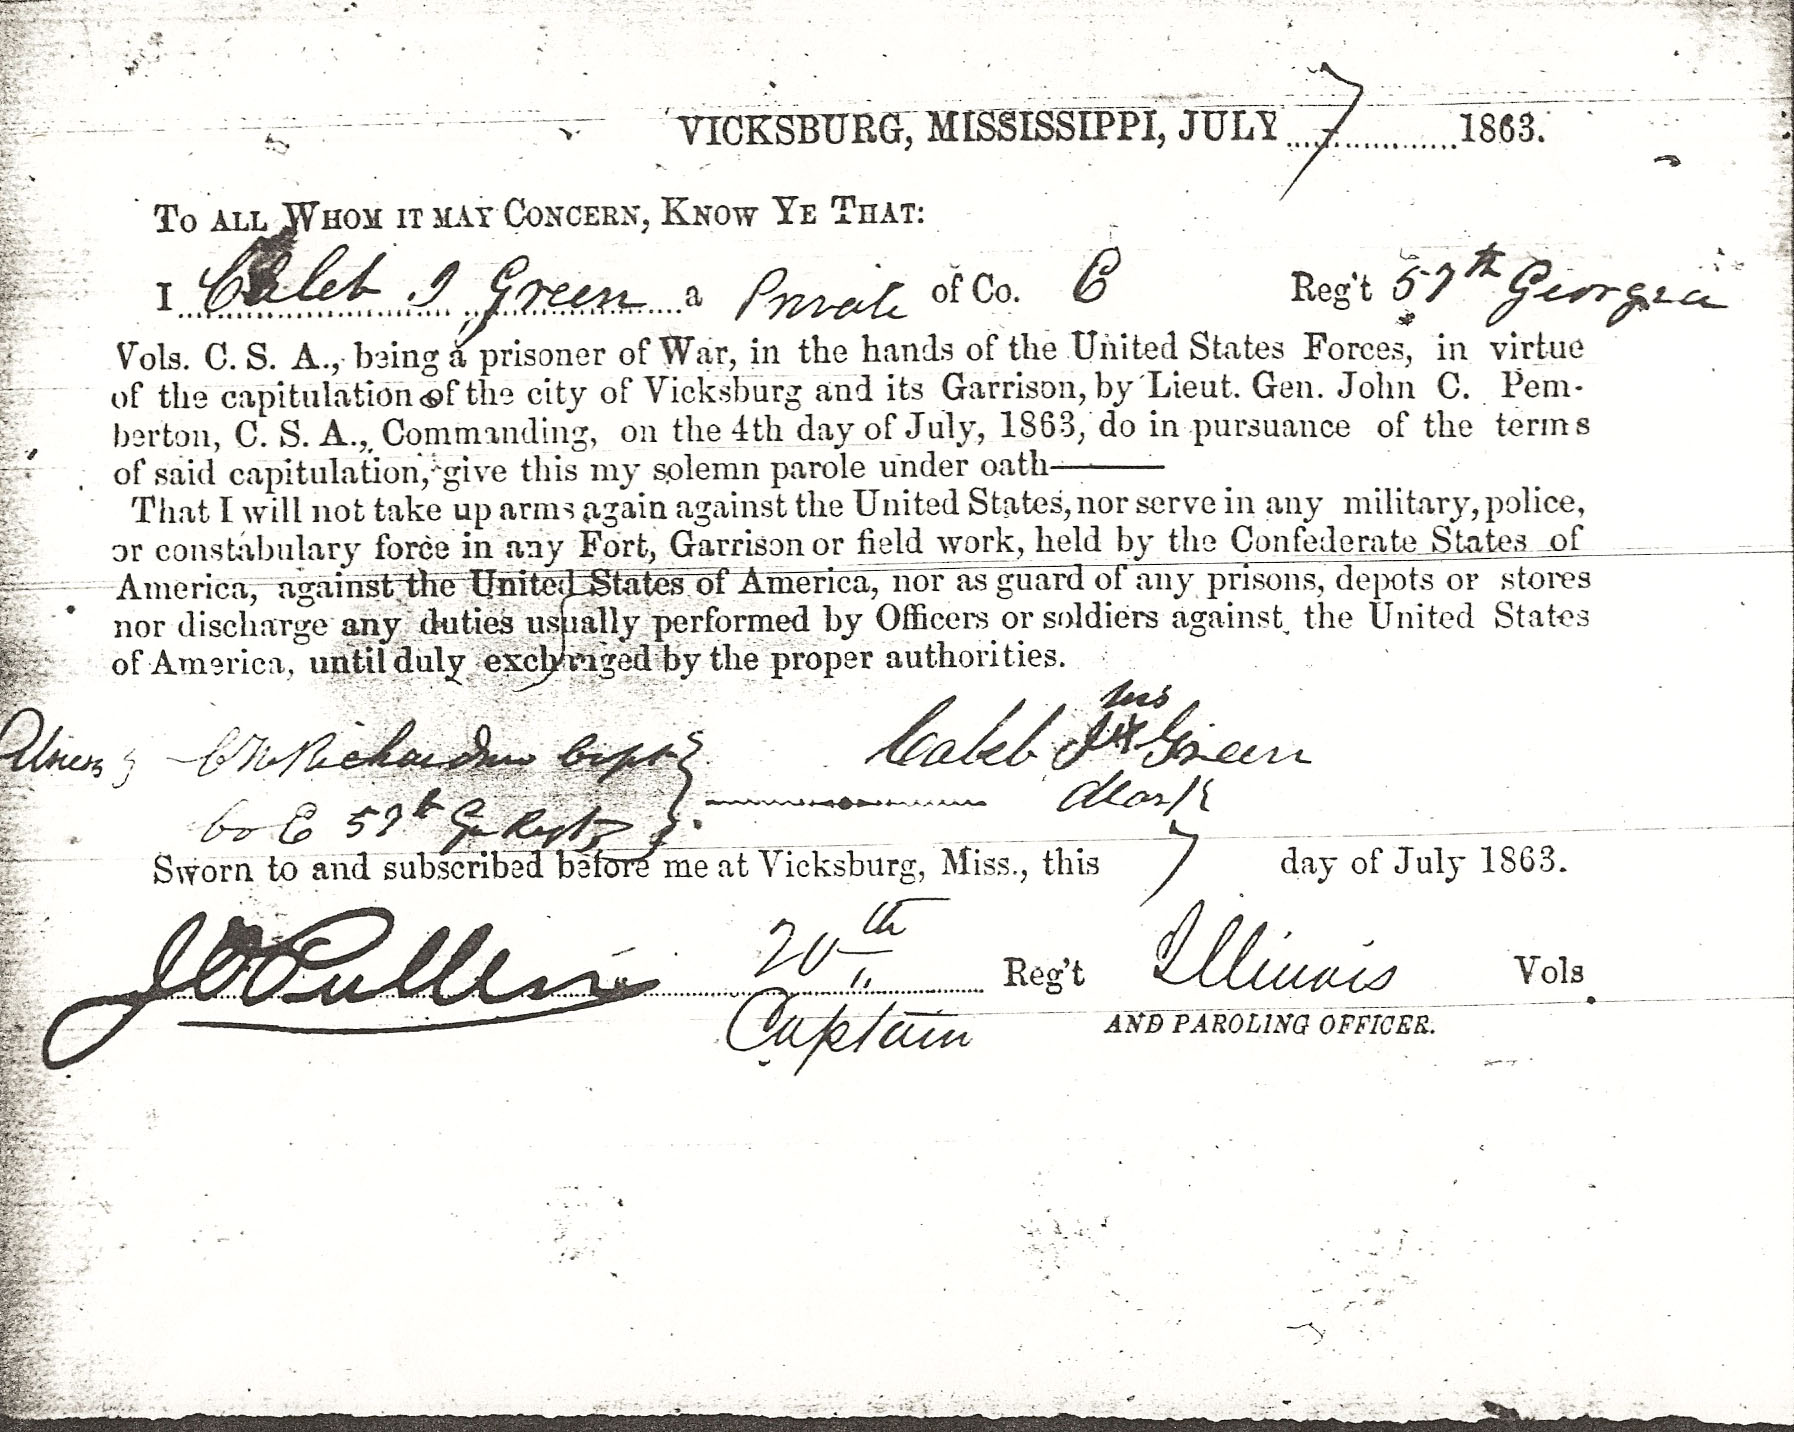 VICKSBURG, MISSISSIPPI, JULY 7 1863.
TO ALL WHOM IT MAY CONCERN, KNOW YE THAT:
I Caleb J Green a Private of Co. C Reg't 57th Georgia
Vols. C. S. A., being a prisoner of War, in the hands of the United States Forces, in virtue
of the capitulation of the city of Vicksburg and its Garrison, by Lieut. Gen. John C. Pem-
berton, C. S. A., Commanding, on the 4th day of July, 1863, do in pursuance of the terms
of said capitulation, give this my solemn parole under oath———
That I will not take up arms again against the United States, nor serve in any military, police,
or constabulary force in any Fort, Garrison or field work, held by the Confederate States of
America, against the United States of America, nor as guard of any prisons, depots or stores
nor discharge any duties usually performed by Officers or soldiers against the United States
of America, until duly exchanged by the proper authorities.
his
Richardson Capt Caleb J X Green
Co E 57th Ga Regt mark
Sworn to and subscribed before me at Vicksburg, Miss., this 7 day of July 1863.
J O Pullen 20th Reg't Illinois Vols
Captain AND PAROLING OFFICER.